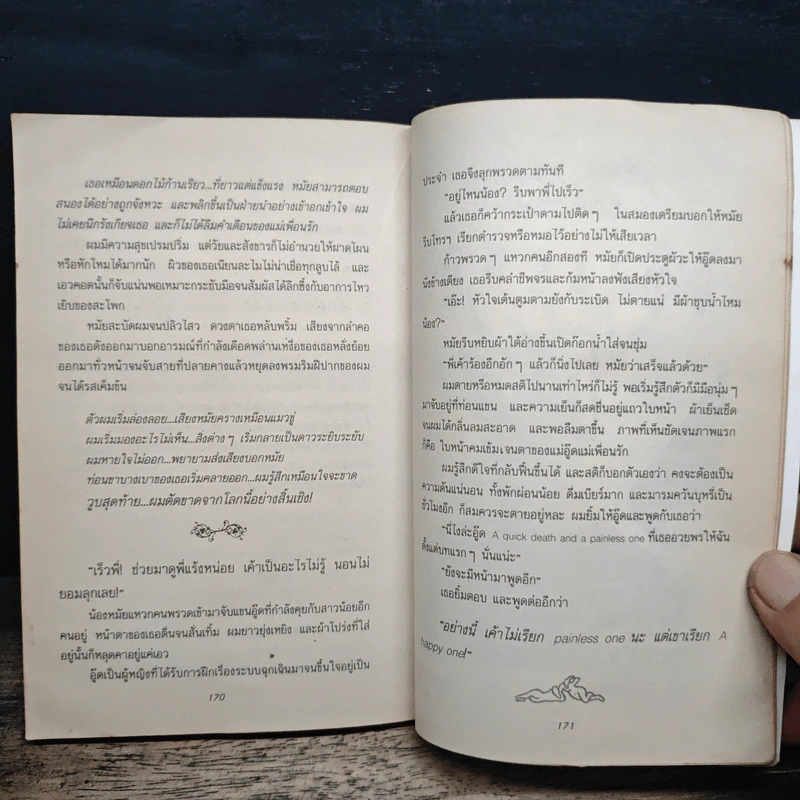 เธอเหมือนดอกไม้ก้านเรียว...ที่ยาวแต่แข็งแรง หมัยสามารถตอบ
สนองได้อย่างถูกจังหวะ และพลิกขึ้นเป็นฝ่ายนำอย่างเข้าอกเข้าใจ ผม
ไม่เคยนึกรังเกียจเธอ และก็ไม่ได้ลืมคำเตือนของแม่เพื่อนรัก
ผมมีความสุขเปรมปริ่ม แต่วัยและสังขารก็ไม่อำนวยให้ผาดโผน
หรือหักโหมได้มากนัก ผิวของเธอเนียนละไมไม่น่าเชื่อทุกลูบไล้ และ
เอวคอดนั้นก็จับแน่นพอเหมาะกระชับมือจนสัมผัสได้ลึกซึ้งกับอาการไหว
เยิบของสะโพก
หมัยสะบัดผมจนปลิวไสว ดวงตาเธอหลับพริ้ม เสียงจากลำคอ
ของเธอดังออกมาบอกอารมณ์ที่กำลังเดือดพล่านเหงื่อของเธอหลั่งย้อย
ออกมาทั่วหน้าจนจับสายที่ปลายคางแล้วหยุดลงพรมริมฝีปากของผม
จนได้รสเค็มข้น
ตัวผมเริ่มล่องลอย...เสียงหมัยครางเหมือนแมวขู่
ผมเริ่มมองอะไรไม่เห็น...สิ่งต่างๆ เริ่มกลายเป็นดาวระยิบระยับ
ผมหายใจไม่ออก...พยายามส่งเสียงบอกหมัย
ท่อนขาบางเบาของเธอเริ่มคลายออก...ผมรู้สึกเหมือนใจจะขาด
วูบสุดท้าย...ผมตัดขาดจากโลกนี้อย่างสิ้นเชิง!
"เร็วพี่! ช่วยมาดูพี่แร้งหน่อย เค้าเป็นอะไรไม่รู้ นอนไม่
ยอมลุกเลย!"
น้องหมัยแหวกคนพรวดเข้ามาจับแขนอู๊ดที่กำลังคุยกับสาวน้อยอีก
คนอยู่ หน้าตาของเธอตื่นจนสั่นเทิ้ม ผมยาวยุ่งเหยิง และผ้าโปร่งที่ใส่
อยู่นั้นก็หลุดคาอยู่แค่เอว
อู๊ดเป็นผู้หญิงที่ได้รับการฝึกเรื่องระบบฉุกเฉินมาจนขึ้นใจอยู่เป็น
170
ประจำ เธอจึงลุกพรวดตามทันที
"อยู่ไหนน้อง? รีบพาพี่ไปเร็ว"
แล้วเธอก็คว้ากระเป๋าตามไปติดๆ ในสมองเตรียมบอกให้หมัย
รีบโทรฯ เรียกตำรวจหรือหมอไว้อย่างไม่ให้เสียเวลา
ก้าวพรวดๆ แหวกคนอีกสองที หมัยก็เปิดประตูผัวะให้อู๊ดลงมา
นั่งข้างเตียง เธอรีบคลำชีพจรและก้มหน้าลงฟังเสียงหัวใจ
"เอ๊ะ! หัวใจเต้นตูมตามยังกับระเบิด ไม่ตายแน่ มีผ้าชุบน้ำไหม
น้อง?"
หมัยรีบหยิบผ้าใต้อ่างขึ้นเปิดก๊อกน้ำใส่จนชุ่ม
"พี่เค้าร้องอึกอักๆ แล้วก็นิ่งไปเลย หมัยว่าเสร็จแล้วด้วย"
ผมตายหรือหมดสติไปนานเท่าไหร่ก็ไม่รู้ พอเริ่มรู้สึกตัวก็มีมือนุ่มๆ
มาจับอยู่ที่ท่อนแขน และความเย็นก็สดชื่นอยู่แถวใบหน้า ผ้าเย็นเช็ด
จนผมได้กลิ่นลมสะอาด และพอลืมตาขึ้น ภาพที่เห็นชัดเจนภาพแรก
ก็คือ ใบหน้าคมเข้มเจนตาของแม่อู๊ดแม่เพื่อนรัก
ผมรู้สึกดีใจที่กลับฟื้นขึ้นได้ และสติก็บอกตัวเองว่า คงจะต้องเป็น
ความดันแน่นอน ทั้งพักผ่อนน้อย ดื่มเบียร์มาก และมารมควันบุหรี่เป็น
ชั่วโมงอีก ก็สมควรจะตายอยู่หละ ผมยิ้มให้อู๊ดและพูดกับเธอว่า
"นี่ไงล่ะอู๊ด A quick death and a painless one ที่เธออวยพรให้ฉัน
ตั้งแต่บทแรกๆ นั่นแน่ะ"
"ยังจะมีหน้ามาพูดอีก"
เธอยิ้มตอบ และพูดต่ออีกว่า
"อย่างนี้ เค้าไม่เรียก painless one นะ แต่เขาเรียก A
happy one!"
171